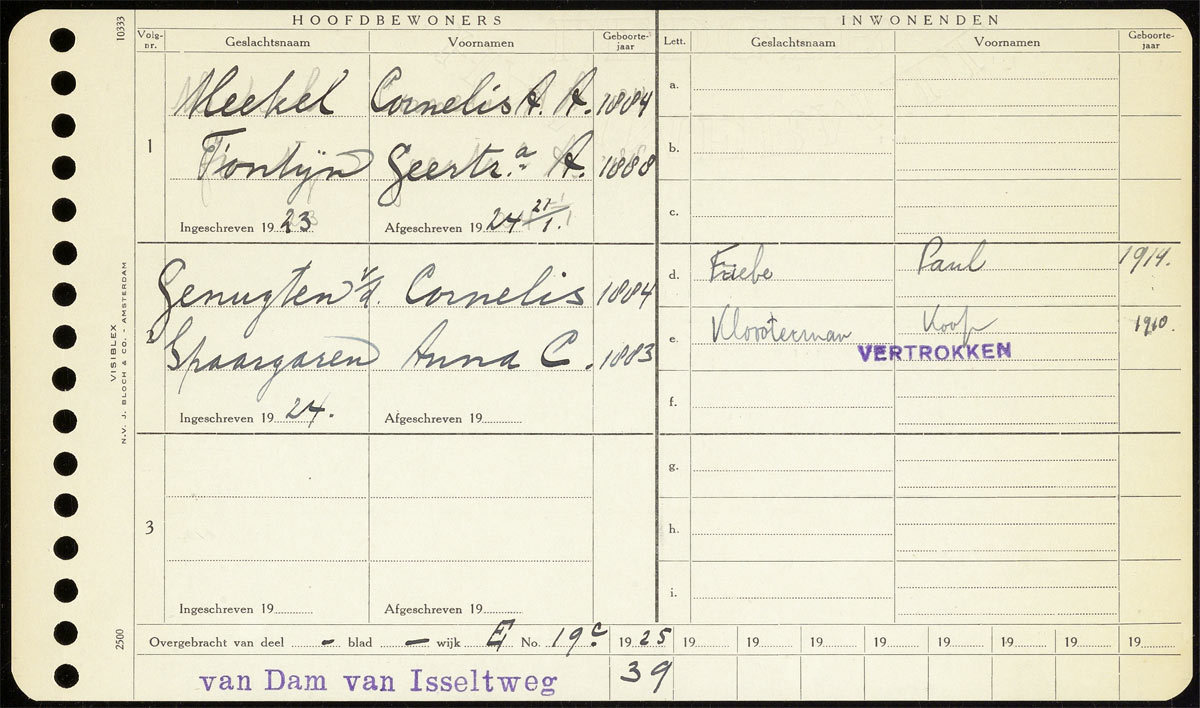 HOOFDBEWONERS
INWONENDEN
10333
Volg-nr. Geslachtsnaam Voornamen Geboorte-jaar
Lett. Geslachtsnaam Voornamen Geboorte-jaar
1
Meekel Cornelis A. A. 1884
Fontijn Geertr.a A. 1888
Ingeschreven 1923 Afgeschreven 1924 21/1.
2
Genugten v/d. Cornelis 1884
Spaargaren Anna C. 1883
Ingeschreven 1924. Afgeschreven 19
3
Ingeschreven 19 Afgeschreven 19
a.
b.
c.
d. Friebe Paul 1914.
e. Kloosterman Koop 1910.
VERTROKKEN
f.
g.
h.
i.
VISIBLEX
N.V. J. BLOCH & CO. - AMSTERDAM
2500
Overgebracht van deel - blad - wijk E No. 19c 1925 19 19 19 19 19 19 19 19
van Dam van Isseltweg 39